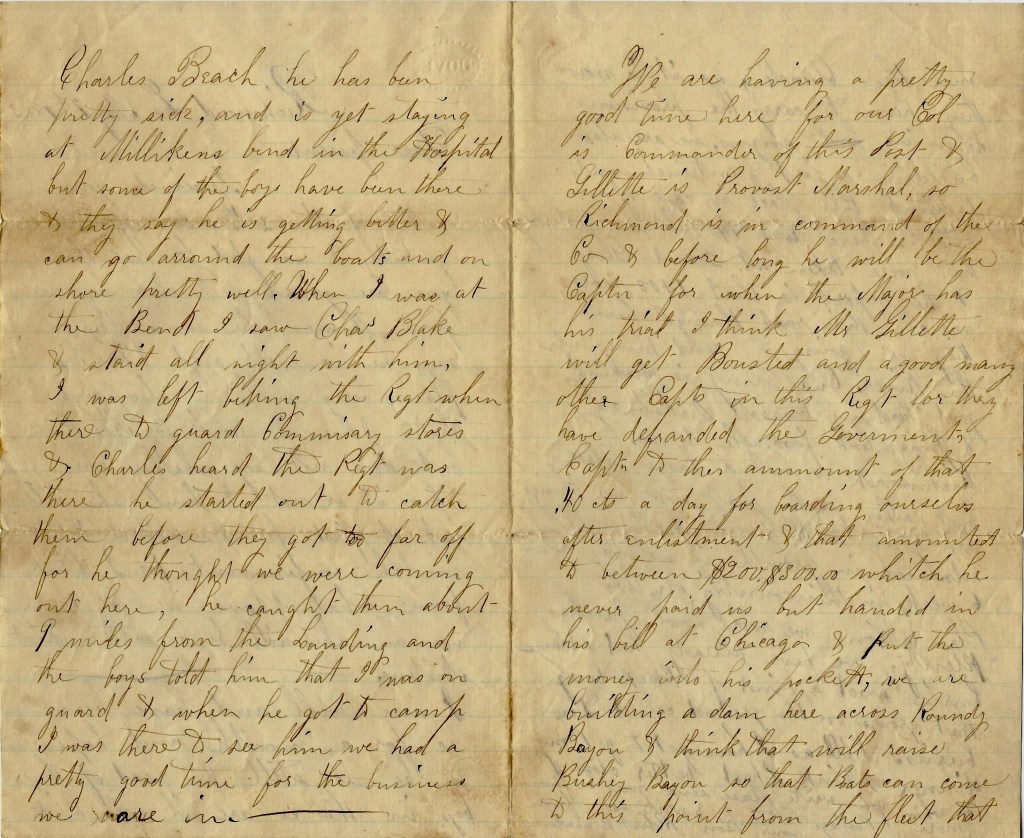 Charles Beach he has been
pretty sick, and is yet staying
at Millikens bend in the Hospital
but some of the boys have been there
& they say he is getting better &
can go arround the boats and on
shore pretty well. When I was at
the Bend I saw Chas Blake
& staid all night with him,
I was left behing the Regt when
there to guard Commisary stores
& Charles heard the Regt was
there he started out to catch
them before they got too far off
for he thought we were coming
out here, he caught them about
9 miles from the Landing and
the boys told him that I was on
guard & when he got to camp
I was there to see him we had a
pretty good time for the business
we are in.
We are having a pretty
good time here for our Col
is Commander of this Post &
Gillette is Provost Marshal, so
Richmond is in command of the
Co & before long he will be the
Captn for when the Major has
his trial I think Mr Gillette
will get Bousted and a good many
other Capts in this Regt for they
have defrauded the Goverment,
Captn to ther ammount of that
.40 cts a day for boarding ourselvs
after enlistment & that amounted
to between $200, $300.00 whitch he
never paid us but handed in
his bill at Chicago & put the
money into his pockett, we are
building a dam here across Roundy
Bayou & think that will raise
Bushey Bayou so that Boats can come
to this point from the fleet that